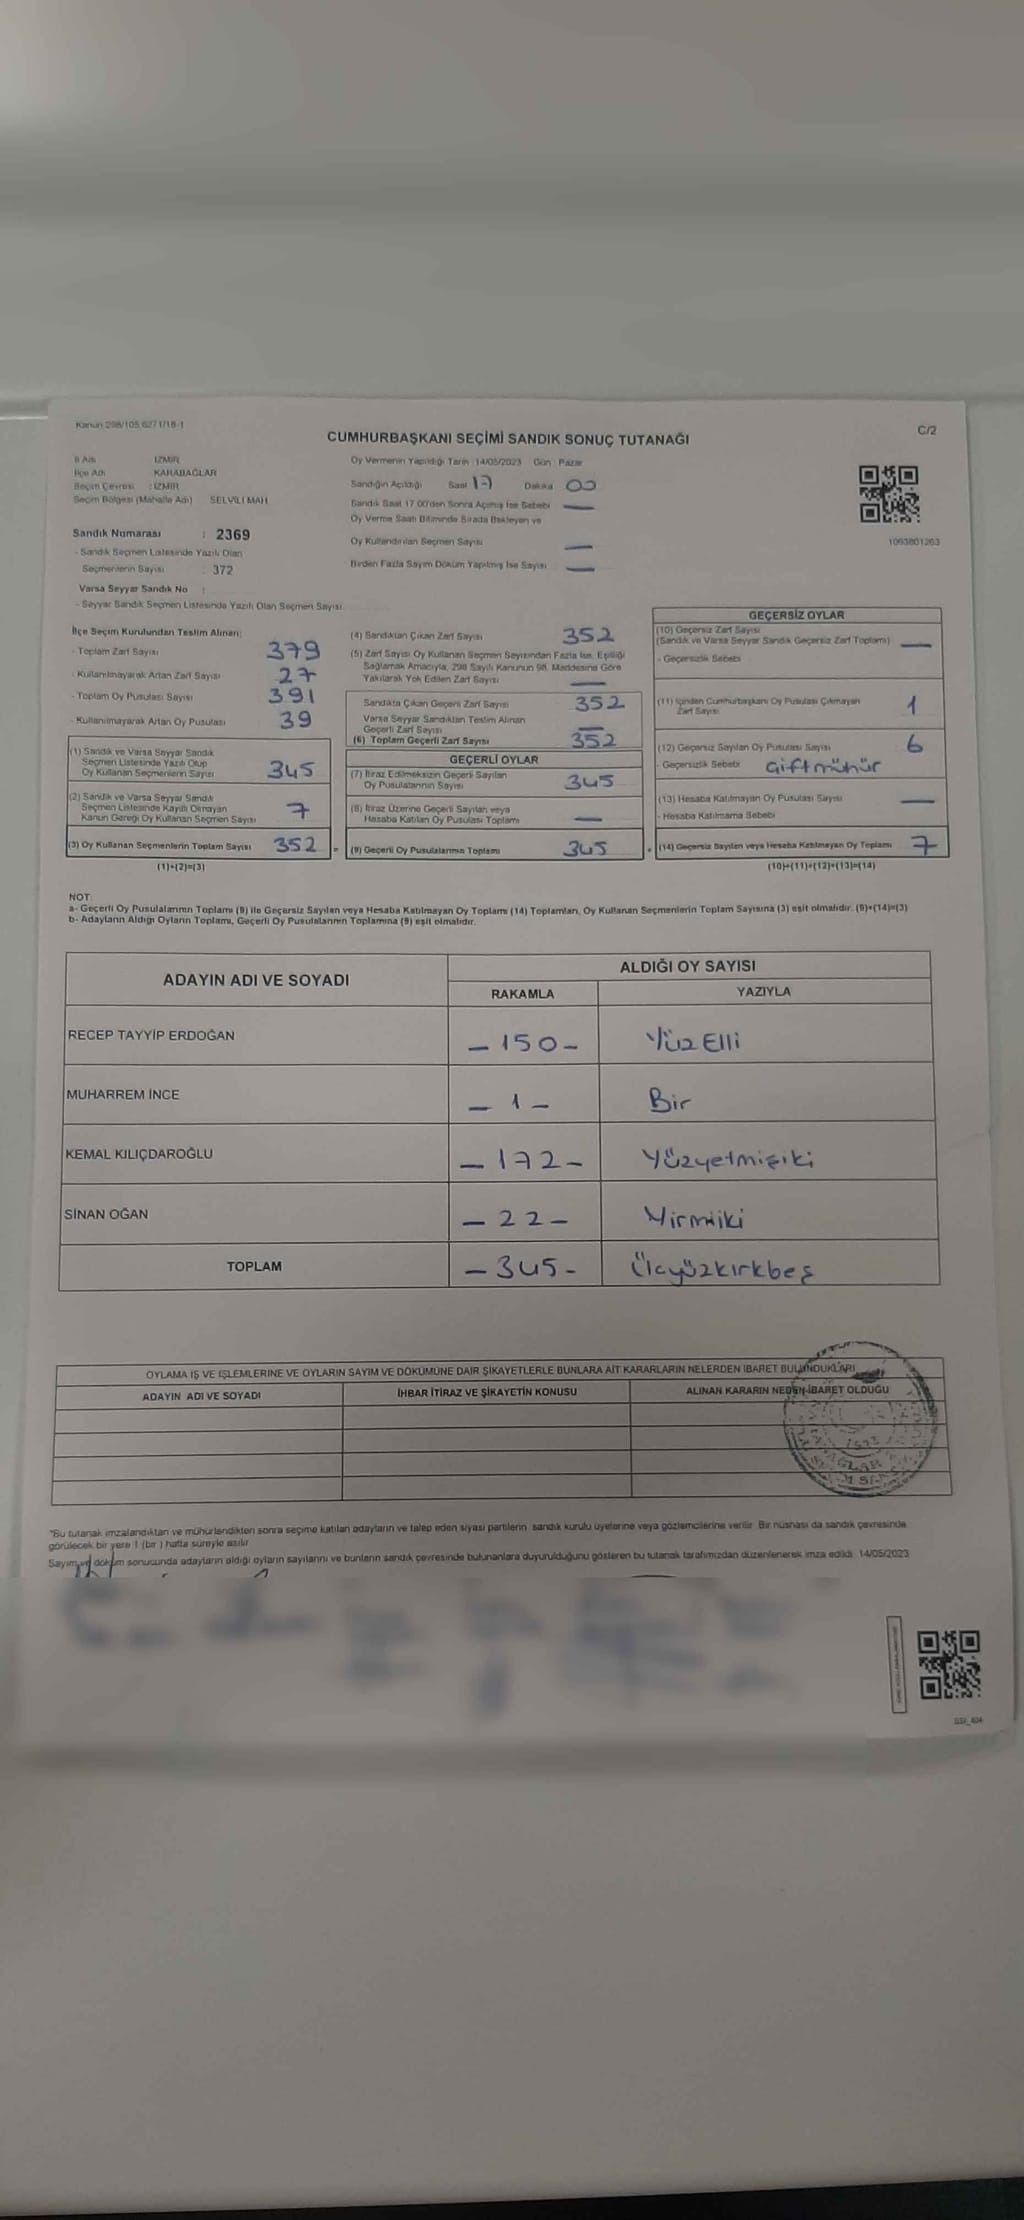 Kanun 298/105, 6271/18-1
C/2
CUMHURBAŞKANI SEÇİMİ SANDIK SONUÇ TUTANAĞI
İl Adı : İZMİR
İlçe Adı : KARABAĞLAR
Seçim Çevresi : İZMİR
Seçim Bölgesi (Mahalle Adı) SELVİLİ MAH.
Oy Vermenin Yapıldığı Tarih : 14/05/2023 Gün : Pazar
Sandığın Açıldığı Saat 17 Dakika 00
Sandık Saat 17.00'den Sonra Açılmış İse Sebebi —
Oy Verme Saati Bitiminde Sırada Bekleyen ve
Oy Kullandırılan Seçmen Sayısı —
Birden Fazla Sayım Döküm Yapılmış İse Sayısı —
1093801263
Sandık Numarası : 2369
- Sandık Seçmen Listesinde Yazılı Olan
Seçmenlerin Sayısı : 372
Varsa Seyyar Sandık No :
- Seyyar Sandık Seçmen Listesinde Yazılı Olan Seçmen Sayısı:
İlçe Seçim Kurulundan Teslim Alınan;
- Toplam Zarf Sayısı 379
- Kullanılmayarak Artan Zarf Sayısı 27
- Toplam Oy Pusulası Sayısı 391
- Kullanılmayarak Artan Oy Pusulası 39
(1) Sandık ve Varsa Seyyar Sandık
Seçmen Listesinde Yazılı Olup
Oy Kullanan Seçmenlerin Sayısı 345
(2) Sandık ve Varsa Seyyar Sandık
Seçmen Listesinde Kayıtlı Olmayan
Kanun Gereği Oy Kullanan Seçmen Sayısı 7
(3) Oy Kullanan Seçmenlerin Toplam Sayısı 352 =
(1)+(2)=(3)
(4) Sandıktan Çıkan Zarf Sayısı 352
(5) Zarf Sayısı Oy Kullanan Seçmen Sayısından Fazla İse, Eşitliği
Sağlamak Amacıyla, 298 Sayılı Kanunun 98. Maddesine Göre
Yakılarak Yok Edilen Zarf Sayısı —
Sandıkta Çıkan Geçerli Zarf Sayısı 352
Varsa Seyyar Sandıktan Teslim Alınan
Geçerli Zarf Sayısı —
(6) Toplam Geçerli Zarf Sayısı 352
GEÇERLİ OYLAR
(7) İtiraz Edilmeksizin Geçerli Sayılan
Oy Pusulalarının Sayısı 345
(8) İtiraz Üzerine Geçerli Sayılan veya
Hesaba Katılan Oy Pusulası Toplamı —
(9) Geçerli Oy Pusulalarının Toplamı 345 +
GEÇERSİZ OYLAR
(10) Geçersiz Zarf Sayısı
(Sandık ve Varsa Seyyar Sandık Geçersiz Zarf Toplamı) —
- Geçersizlik Sebebi
(11) İçinden Cumhurbaşkanı Oy Pusulası Çıkmayan
Zarf Sayısı 1
(12) Geçersiz Sayılan Oy Pusulası Sayısı 6
- Geçersizlik Sebebi Çift mühür
(13) Hesaba Katılmayan Oy Pusulası Sayısı —
- Hesaba Katılmama Sebebi
(14) Geçersiz Sayılan veya Hesaba Katılmayan Oy Toplamı 7
(10)+(11)+(12)+(13)=(14)
NOT:
a- Geçerli Oy Pusulalarının Toplamı (9) ile Geçersiz Sayılan veya Hesaba Katılmayan Oy Toplamı (14) Toplamları, Oy Kullanan Seçmenlerin Toplam Sayısına (3) eşit olmalıdır. (9)+(14)=(3)
b- Adayların Aldığı Oyların Toplamı, Geçerli Oy Pusulalarının Toplamına (9) eşit olmalıdır.
ADAYIN ADI VE SOYADI
ALDIĞI OY SAYISI
RAKAMLA YAZIYLA
RECEP TAYYİP ERDOĞAN – 150 – Yüz Elli
MUHARREM İNCE – 1 – Bir
KEMAL KILIÇDAROĞLU – 172 – Yüzyetmişiki
SİNAN OĞAN – 22 – Yirmiiki
TOPLAM – 345 – Üçyüzkırkbeş
OYLAMA İŞ VE İŞLEMLERİNE VE OYLARIN SAYIM VE DÖKÜMÜNE DAİR ŞİKAYETLERLE BUNLARA AİT KARARLARIN NELERDEN İBARET BULUNDUKLARI
ADAYIN ADI VE SOYADI İHBAR İTİRAZ VE ŞİKAYETİN KONUSU ALINAN KARARIN NEDEN İBARET OLDUĞU
*Bu tutanak imzalandıktan ve mühürlendikten sonra seçime katılan adayların ve talep eden siyasi partilerin sandık kurulu üyelerine veya gözlemcilerine verilir. Bir nüshası da sandık çevresinde
görülecek bir yere 1 (bir) hafta süreyle asılır.
Sayım ve döküm sonucunda adayların aldığı oyların sayılarını ve bunların sandık çevresinde bulunanlara duyurulduğunu gösteren bu tutanak tarafımızdan düzenlenerek imza edildi. 14/05/2023